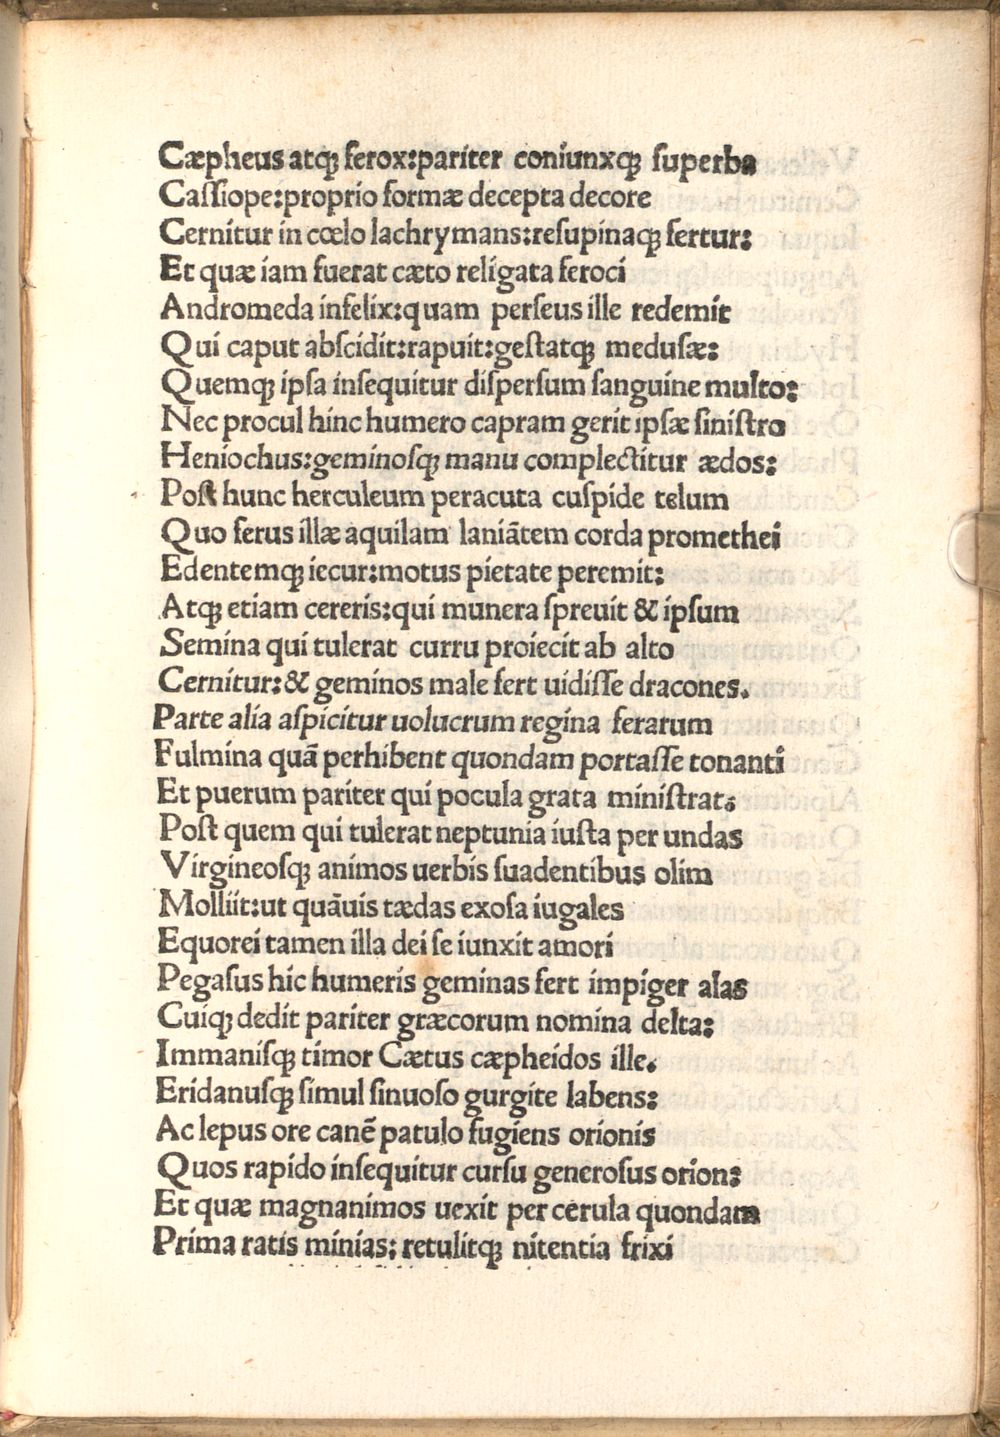 Cæpheus atqꝫ ferox:pariter coniunxqꝫ superba
Caſſiope:proprio formæ decepta decore
Cernitur in cœlo lachrymans:resupinaqꝫ fertur:
Et quæ iam fuerat cæto religata feroci
Andromeda infelix:quam perseus ille redemit
Qui caput abſcidit:rapuit:geſtatqꝫ medusæ:
Quemqꝫ ipsa inſequitur diſperſum ſanguine multo:
Nec procul hinc humero capram gerit ipſæ ſiniſtro
Heniochus:geminoſqꝫ manu complectitur ædos:
Poſt hunc herculeum peracuta cuſpide telum
Quo ferus illæ aquilam laniātem corda promethei
Edentemqꝫ iecur:motus pietate peremit:
Atqꝫ etiam cereris:qui munera ſpreuit & ipſum
Semina qui tulerat curru proiecit ab alto
Cernitur:& geminos male fert uidiſſe dracones.
Parte alia aſpicitur uolucrum regina ferarum
Fulmina quā perhibent quondam portaſſe tonanti
Et puerum pariter qui pocula grata miniſtrat:
Poſt quem qui tulerat neptunia iuſta per undas
Virgineoſqꝫ animos uerbis ſuadentibus olim
Molliit:ut quāuis tædas exoſa iugales
Equorei tamen illa dei ſe iunxit amori
Pegaſus hic humeris geminas fert impiger alas
Cuiqꝫ dedit pariter græcorum nomina delta:
Immaniſqꝫ timor Cætus cæpheidos ille.
Eridanuſqꝫ ſimul ſinuoſo gurgite labens:
Ac lepus ore canē patulo fugiens orionis
Quos rapido inſequitur curſu generoſus orion:
Et quæ magnanimos uexit per cerula quondam
Prima ratis minias: retulitqꝫ nitentia frixi